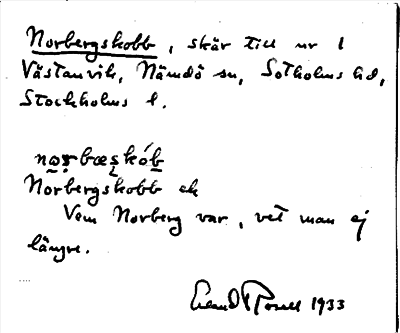 Norbergskobb, skär till nr 1
Västanvik, Nämdö sn, Sotholms hd,
Stockholms l.
Norbergskobb ek
Vem Norberg var, vet man ej
längre.
1933